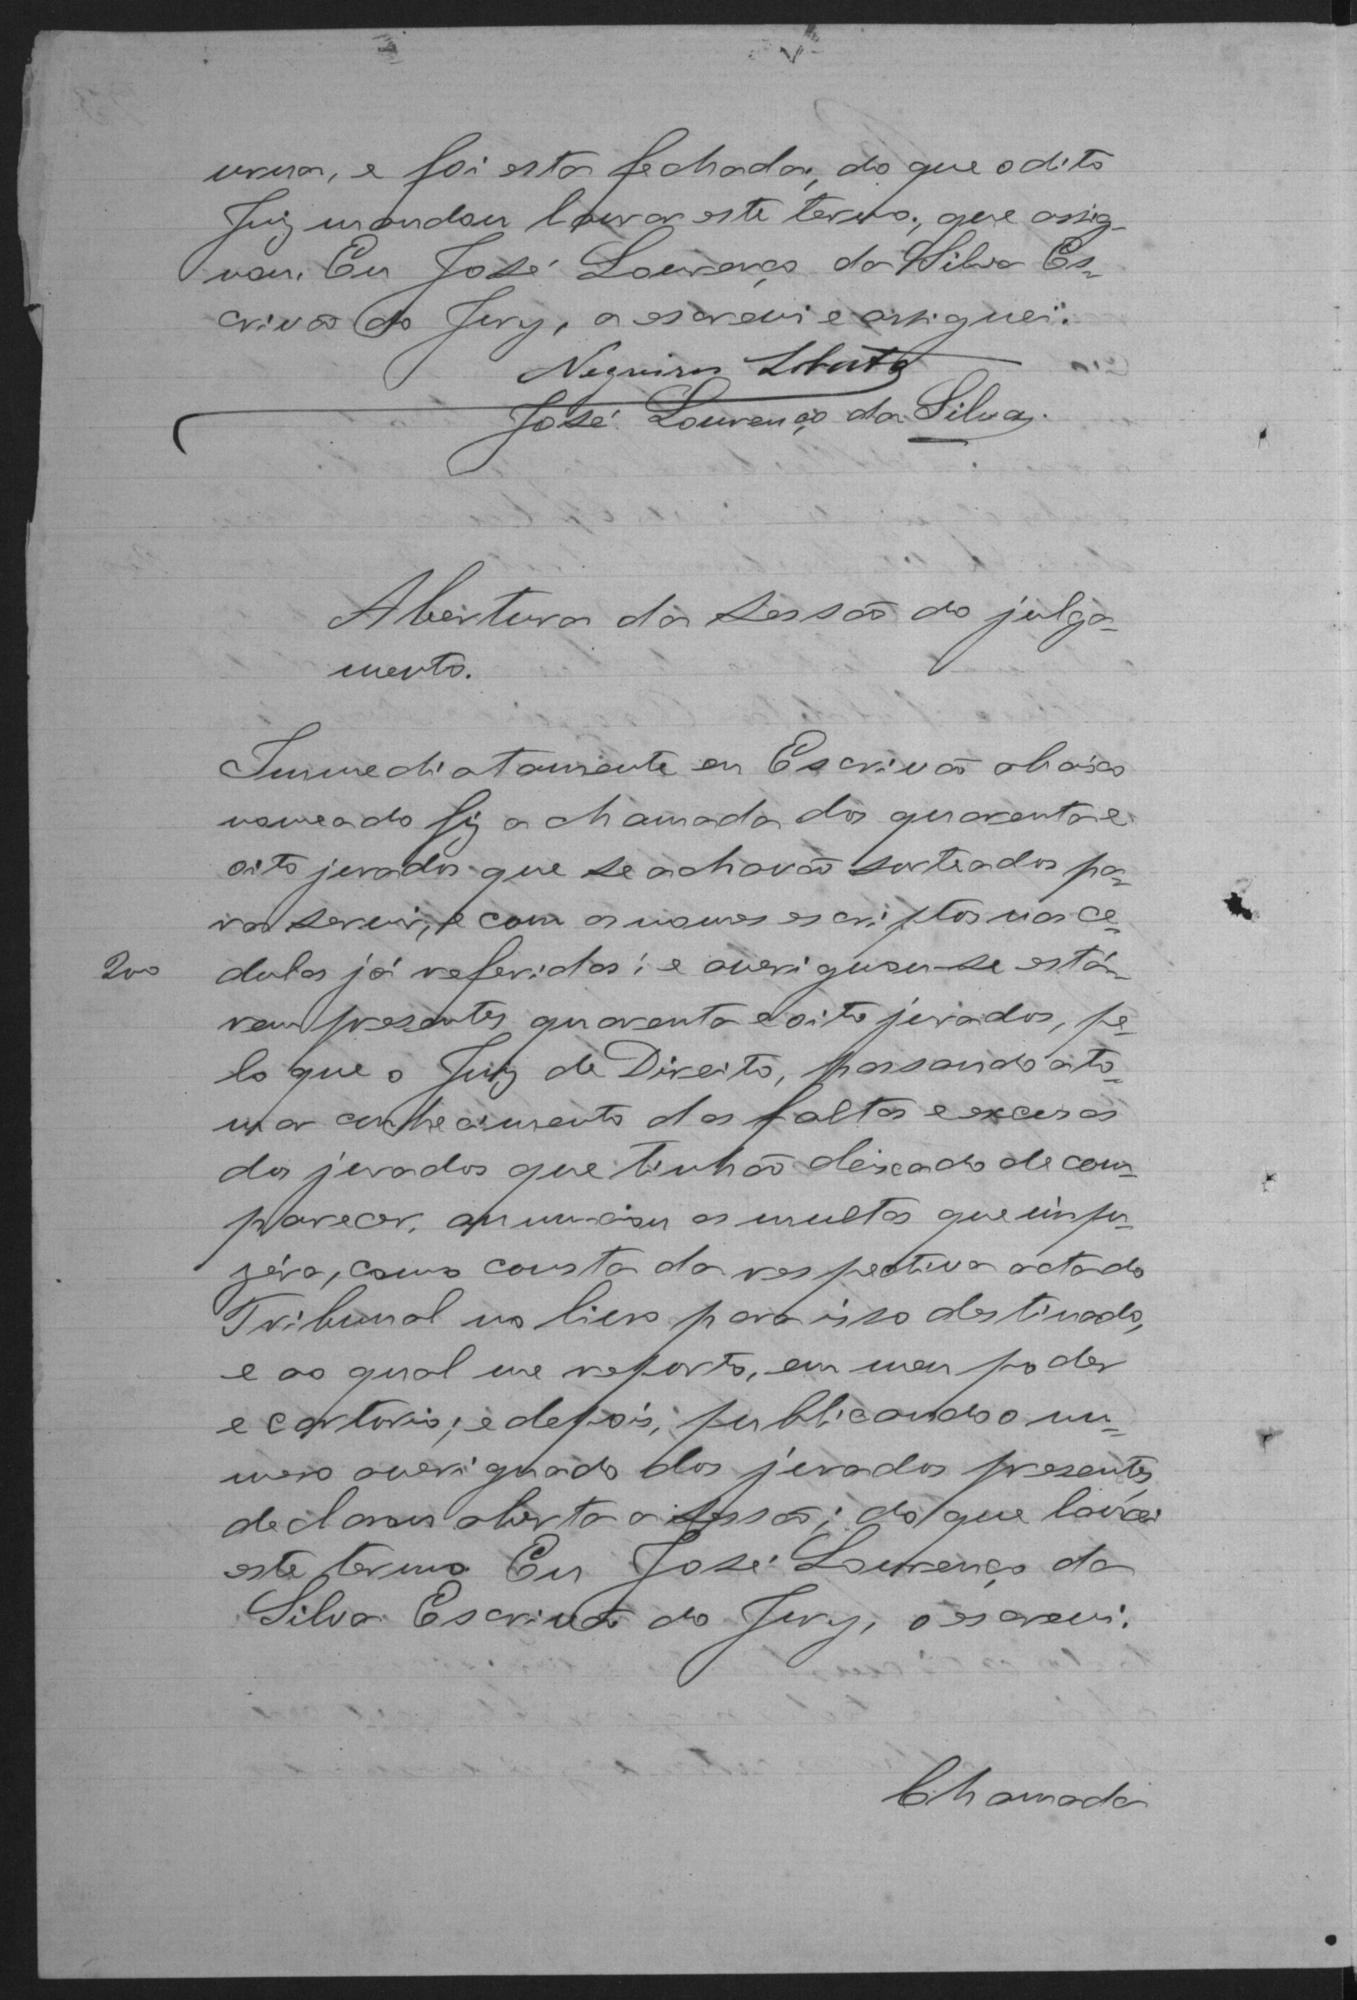 urna, e foi esta fechada; do que o dito
Juiz mandou lavrar este termo, que assig-
nou. Eu José Lourenço da Silva Es-
crivão do Jury, o escrevi e assignei.
Nogueira Lobato
José Lourenço da Silva.
Abertura da sessão do julga-
mento.
Immediatamente eu Escrivão abaixo
nomeado fiz a chamada dos quarenta e
oito jurados que se achavão sorteados pa-
ra servir, e com os nomes escriptos nas ce-
200 dulas já referidas; e averiguou-se está-
rem presentes quarenta e oito jurados, pe-
lo que o Juiz de Direito, passando a to-
mar conhecimento das faltas e excusas
dos jurados que tinhão deixado de com-
parecer, annunciou as multas que impu-
zéra, como consta da respectiva acta do
Tribunal no livro para isso destinado,
e ao qual me reporto, em meu poder
e cartorio; e depois, publicando o nu-
mero averiguado dos jurados presentes,
declarou aberta a sessão; do que lavrei
este termo. Eu José Lourenço da
Silva Escrivão do Jury, o escrevi.
Chamada